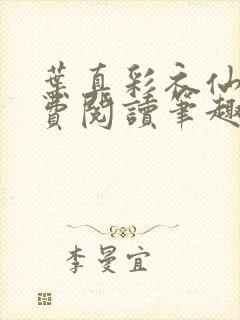 葉真彩衣仙
費閱讀筆趣
李曼宜